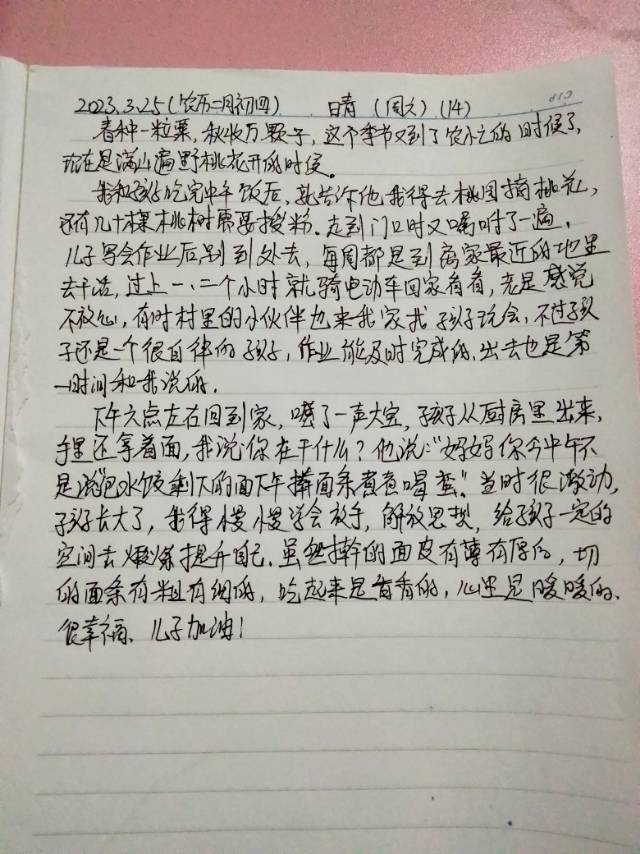 2023.3.25(农历二月初四) 晴 (周六) (14)
春种一粒粟,秋收万颗子,这个季节又到了农忙的时候了,
现在是满山遍野桃花开的时候。
我和孩子吃完中午饭后,就告诉他我得去桃园摘桃花,
还有几十棵桃树需要授粉.走到门口时又嘱咐了一遍,
儿子写会作业后别到处去,每周都是到离家最近的地里
去干活,过上一、二个小时就骑电动车回家看看,老是感觉
不放心,有时村里的小伙伴也来我家找孩子玩会,不过孩
子还是一个很自律的孩子,作业能及时完成的,出去也是第
一时间和我说的.
下午六点左右回到家,喊了一声大宝,孩子从厨房里出来,
手里还拿着面,我说:你在干什么?他说:"妈妈你今中午不
是说包水饺剩下的面下午擀面条煮着喝蛮"当时很激动,
孩子长大了,我得慢慢学会放手,解放思想,给孩子一定的
空间去锻炼提升自己.虽然擀的面皮有薄有厚的,切
的面条有粗有细的,吃起来是香香的,心里是暖暖的、
很幸福、儿子加油!